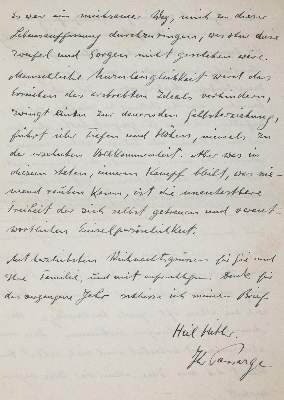 Es war ein mühsamer Weg, mich zu dieser
Lebensauffassung durchzuringen, was ohne diese
Zweifel und Sorgen nicht geschehen wäre.
Menschliche Unzulänglichkeit wird das
Erreichen des erstrebten Ideals verhindern,
zwingt zur dauernden Selbsterziehung,
führt über Tiefen und Höhen, niemals zu
der wirklichen Vollkommenheit. Aber was in
diesem steten, inneren Kampf bleibt, was nie-
mand rauben kann, ist die unantastbare
Freiheit der sich selbst getreuen und verant-
wortlichen Einzelpersönlichkeit.
Mit herzlichsten Weihnachtsgrüssen für Sie und
Ihre Familie, und mit aufrichtigem Dank für
das vergangene Jahr schliesse ich meinen Brief.
Heil Hitler.
Ihr Passarge